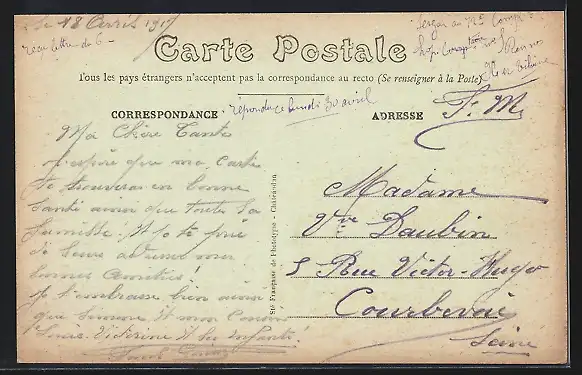 le 18 Avril 1917
reçu lettre du 6
CARTE POSTALE
Tous les pays étrangers n'acceptent pas la correspondance au recto (Se renseigner à la Poste)
répondu ce lundi 30 avril
CORRESPONDANCE
ADRESSE
F. M
Ma Chère Tante
J'espère que ma carte
te trouvera en bonne
santé ainsi que toute la
famille. Et je te prie
de leurs
bonnes amitiés!
je t'embrasse bien ainsi
que Simone. Et mon Cousin
Louis. Victorine Et les Enfants!
Sté Française de Phototypie - Châteaudun
Madame
Vve Daubin
5 Rue Victor-Hugo
Courbevoie
Seine